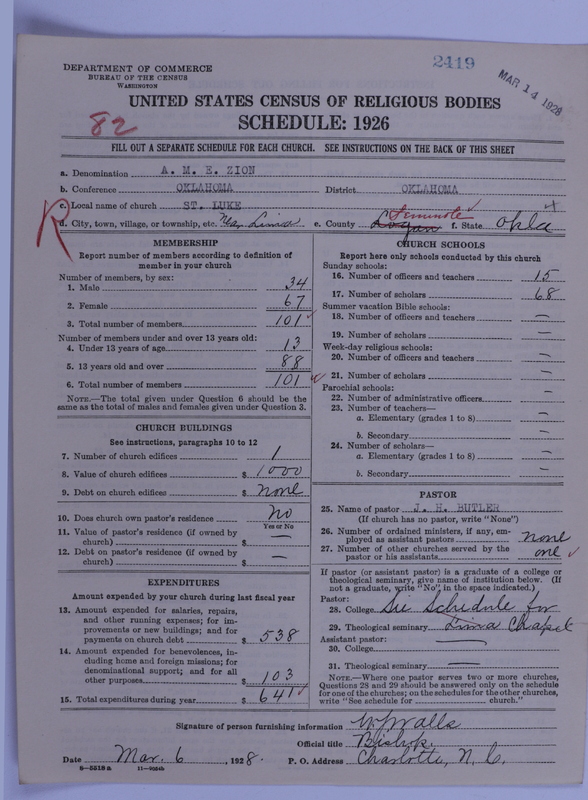 2419
MAR 14 1928
DEPARTMENT OF COMMERCE
BUREAU OF THE CENSUS
WASHINGTON
UNITED STATES CENSUS OF RELIGIOUS BODIES
SCHEDULE: 1926
82
FILL OUT A SEPARATE SCHEDULE FOR EACH CHURCH. SEE INSTRUCTIONS ON THE BACK OF THIS SHEET
a. Denomination A. M. E. ZION
b. Conference OKLAHOMA District OKLAHOMA
c. Local name of church ST. LUKE
R
d. City, town, village, or township, etc. Near Lima e. County Logan Seminole f. State Okla
MEMBERSHIP
Report number of members according to definition of
member in your church
Number of members, by sex:
1. Male 34
2. Female 67
3. Total number of members 101
Number of members under and over 13 years old:
4. Under 13 years of age 13
5. 13 years old and over 88
6. Total number of members 101
NOTE.—The total given under Question 6 should be
the same as the total of males and females given under Question 3.
CHURCH BUILDINGS
See instructions, paragraphs 10 to 12
7. Number of church edifices 1
8. Value of church edifices $ 1000
9. Debt on church edifices $ none
10. Does church own pastor's residence No
Yes or No
11. Value of pastor's residence (if owned by
church) $ —
12. Debt on pastor's residence (if owned by
church) $ —
EXPENDITURES
Amount expended by your church during last fiscal year
13. Amount expended for salaries, repairs,
and other running expenses; for im-
provements or new buildings; and for
payments on church debt $ 538
14. Amount expended for benevolences, in-
cluding home and foreign missions; for
denominational support; and for all
other purposes $ 103
15. Total expenditures during year $ 641
CHURCH SCHOOLS
Report here only schools conducted by this church
Sunday schools:
16. Number of officers and teachers 15
17. Number of scholars 68
Summer vacation Bible schools:
18. Number of officers and teachers —
19. Number of scholars —
Week-day religious schools:
20. Number of officers and teachers —
21. Number of scholars —
Parochial schools:
22. Number of administrative officers —
23. Number of teachers—
a. Elementary (grades 1 to 8) —
b. Secondary —
24. Number of scholars—
a. Elementary (grades 1 to 8) —
b. Secondary —
PASTOR
25. Name of pastor J. H. BUTLER
(If church has no pastor, write "None")
26. Number of ordained ministers, if any, em-
ployed as assistant pastors none
27. Number of other churches served by the
pastor or his assistants one
If pastor (or assistant pastor) is a graduate of a college or
theological seminary, give name of institution below. (If
not a graduate, write "No", in the space indicated.)
Pastor:
28. College See Schedule for
29. Theological seminary Lima Chapel
Assistant pastor:
30. College —
31. Theological seminary —
NOTE.—Where one pastor serves two or more churches,
Questions 28 and 29 should be answered only on the schedule
for one of the churches; on the schedules for the other churches,
write "See schedule for church."
Signature of person furnishing information W J Walls
Official title Bishop.
Date Mar. 6, 1928. P. O. Address Charlotte, N. C.
8—5518a 11—9034b